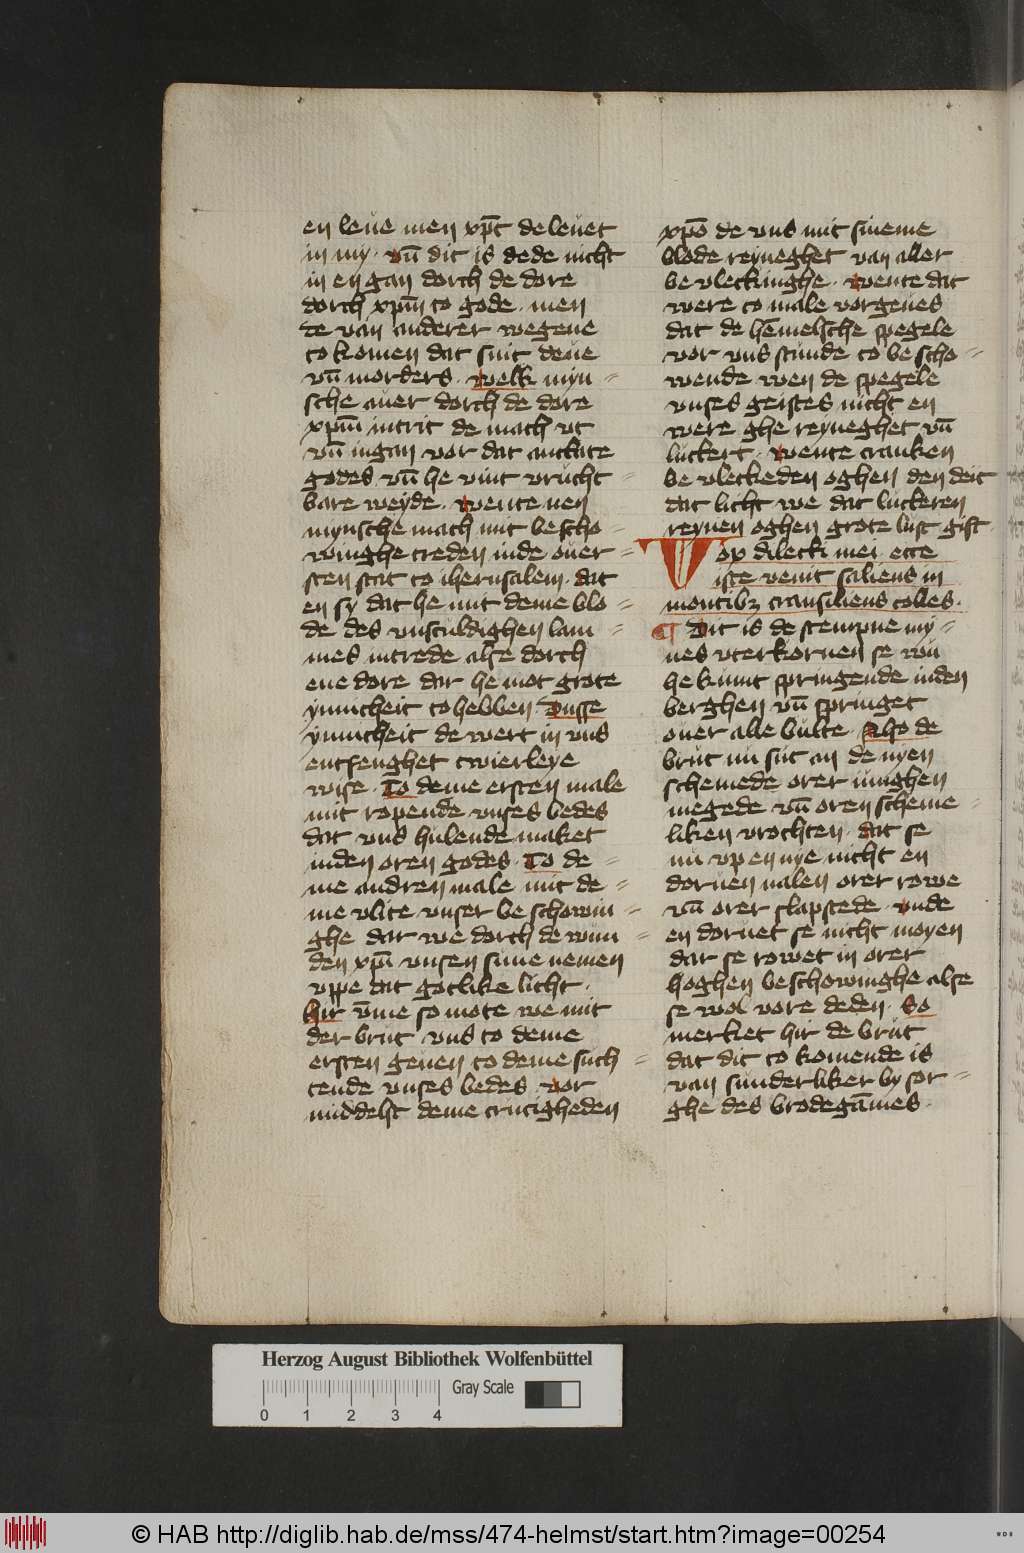 en leue men xp̄c de leuet
in my · vn̄ dit is dede nicht
in en gan dorch de dore
dorch xpm̄ to gode · men
de van anderer wegene
to komen dat sint deue
vn̄ morders · welk myn =
sche auer dorch de dore
xpm̄ intrit de mach vt
vn̄ ingan vor dat antlate
godes vn̄ he vint vrucht =
bare weyde · wente nen
mynsche mach mit bescho =
winghe treden inde ouer =
sten stat to iherusalem · dat
en sy dat he mit deme blo =
de des vnsculdighen lam =
mes intrede alse dorch
ene dore dar he mot grote
ynnicheit to hebben · Dusse
ynnicheit de wert in vns
entfenghet twierleye
wise · To deme ersten male
mit ropende vnses bedes
dat vns hulende maket
in den oren godes · To de =
me andren male mit de =
me vlite vnser beschowin =
ghe dar we dorch de wun =
den xpī vnsen sinne nemen
vppe dat gotlike licht ·
hir v̄me so mote we mit
der brut vns to deme
ersten geuen to deme such =
tende vnses bedes · vor
middelst deme crucigheden
xpō de vns mit sineme
blode reyneghet van aller
bevleckinghe · wente dat
were to male vorgeues
dat de hemelsche spegele
vor vns stunde to bescho =
wende wen de spegele
vnses geistes nicht en
were ghe reyneghet vn̄
luckert · wente cranken
bevleckeden oghen den deit
dat licht we dat luckeren
reynen oghen grote lust gift
Vox dilecti mei ecce
iste venit saliens in
montibꝫ transiliens colles ·
¶ Dit is de stempne my =
nes vterkornen se wu
he kumt springende inden
berghen vn̄ springet
ouer alle bulte · Also de
brut nu sut an de nyen
schemede orer iunghen
megede vn̄ oren scheme =
liken vrochten · dat se
nu vp en nye nicht en
doruen nalen orer rowe
vn̄ orer slapstede · vnde
en doruet se nicht moyen
dar se rowet in orer
hoghen beschowinghe alse
se wol vore deden · So
merket hir de brut
dat dit to komende is
van sunderliker by sor =
ghe des brodegāmes ·
Herzog August Bibliothek Wolfenbüttel
Gray Scale
0 1 2 3 4
© HAB http://diglib.hab.de/mss/474-helmst/start.htm?image=00254